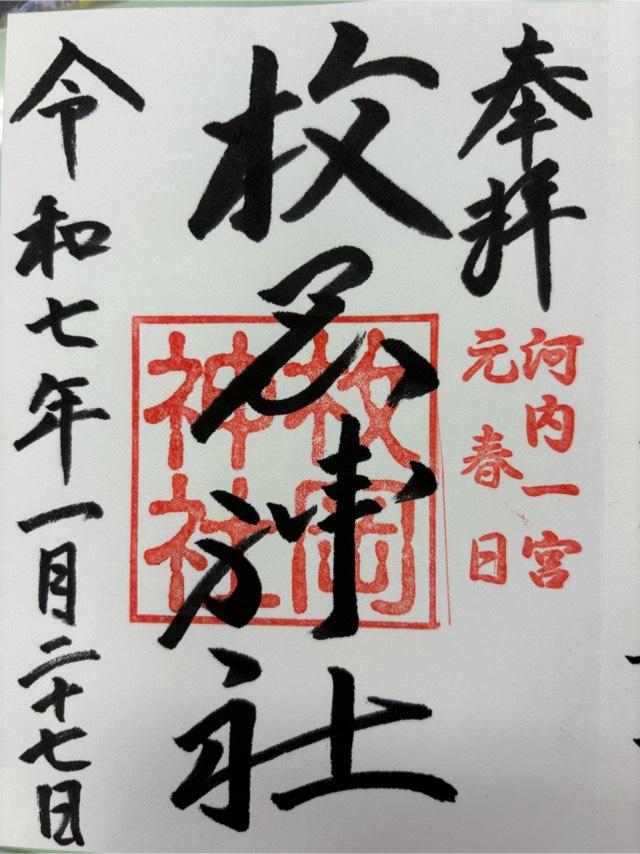 奉拝
河内一宮
元春日
枚岡神社
枚岡神社
令和七年一月二十七日